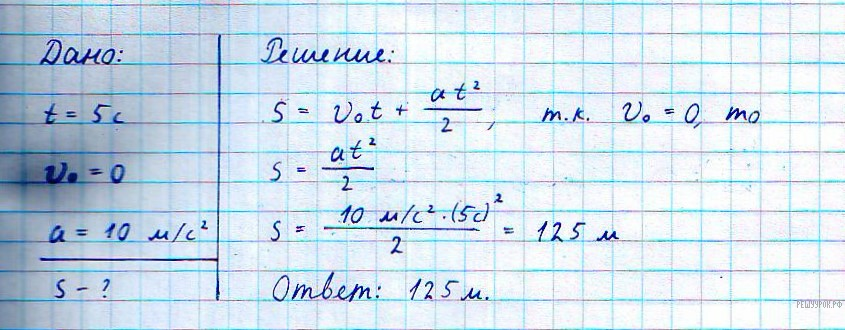 Дано:
t = 5с
v₀ = 0
a = 10 м/с²
S - ?
Решение:
S = v₀t + at²/2, т.к. v₀ = 0, то
S = at²/2
S = 10 м/с² · (5с)²/2 = 125 м
Ответ: 125 м.
РЕШУУРОК.РФ